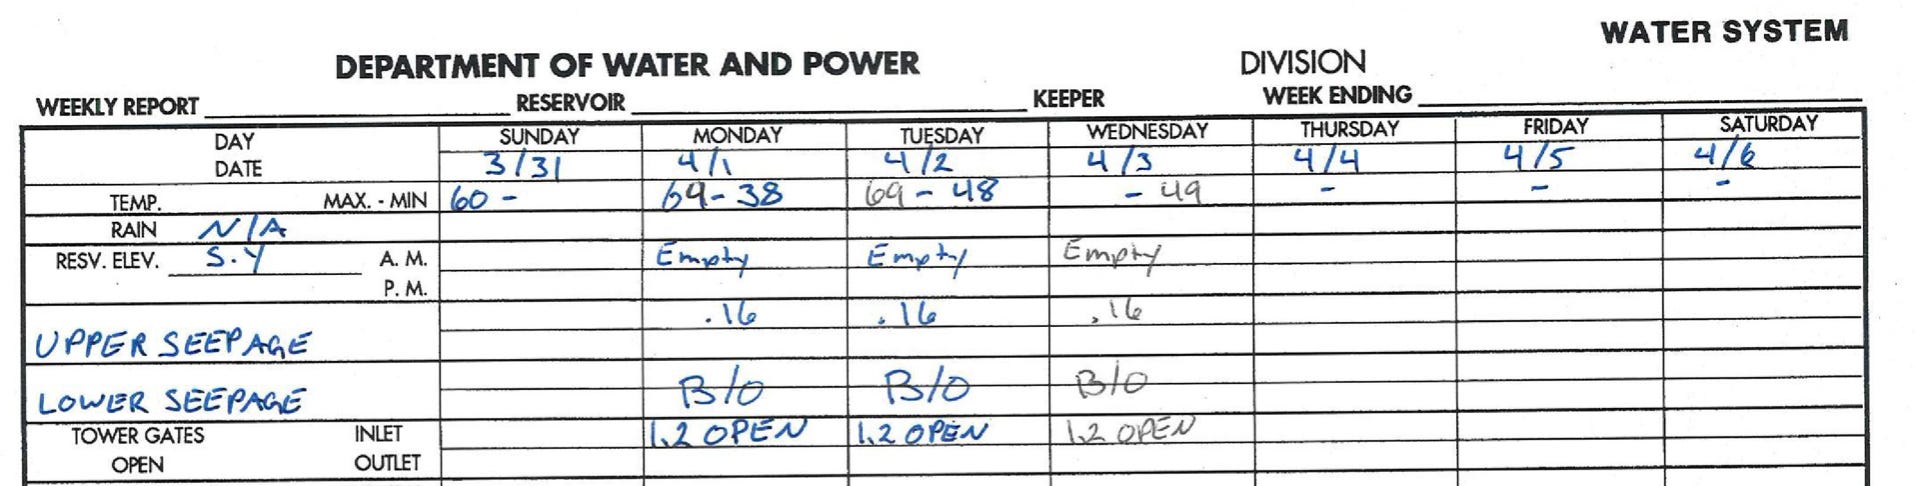 WATER SYSTEM
DEPARTMENT OF WATER AND POWER DIVISION
WEEKLY REPORT RESERVOIR KEEPER WEEK ENDING
DAY SUNDAY MONDAY TUESDAY WEDNESDAY THURSDAY FRIDAY SATURDAY
DATE 3/31 4/1 4/2 4/3 4/4 4/5 4/6
TEMP. MAX. - MIN 60 - 69-38 69 - 48 - 49 - - -
RAIN N/A
RESV. ELEV. S.Y A. M. Empty Empty Empty
P. M.
.16 .16 .16
UPPER SEEPAGE
LOWER SEEPAGE B/O B/O B/O
TOWER GATES INLET 1.2 OPEN 1.2 OPEN 1.2 OPEN
OPEN OUTLET